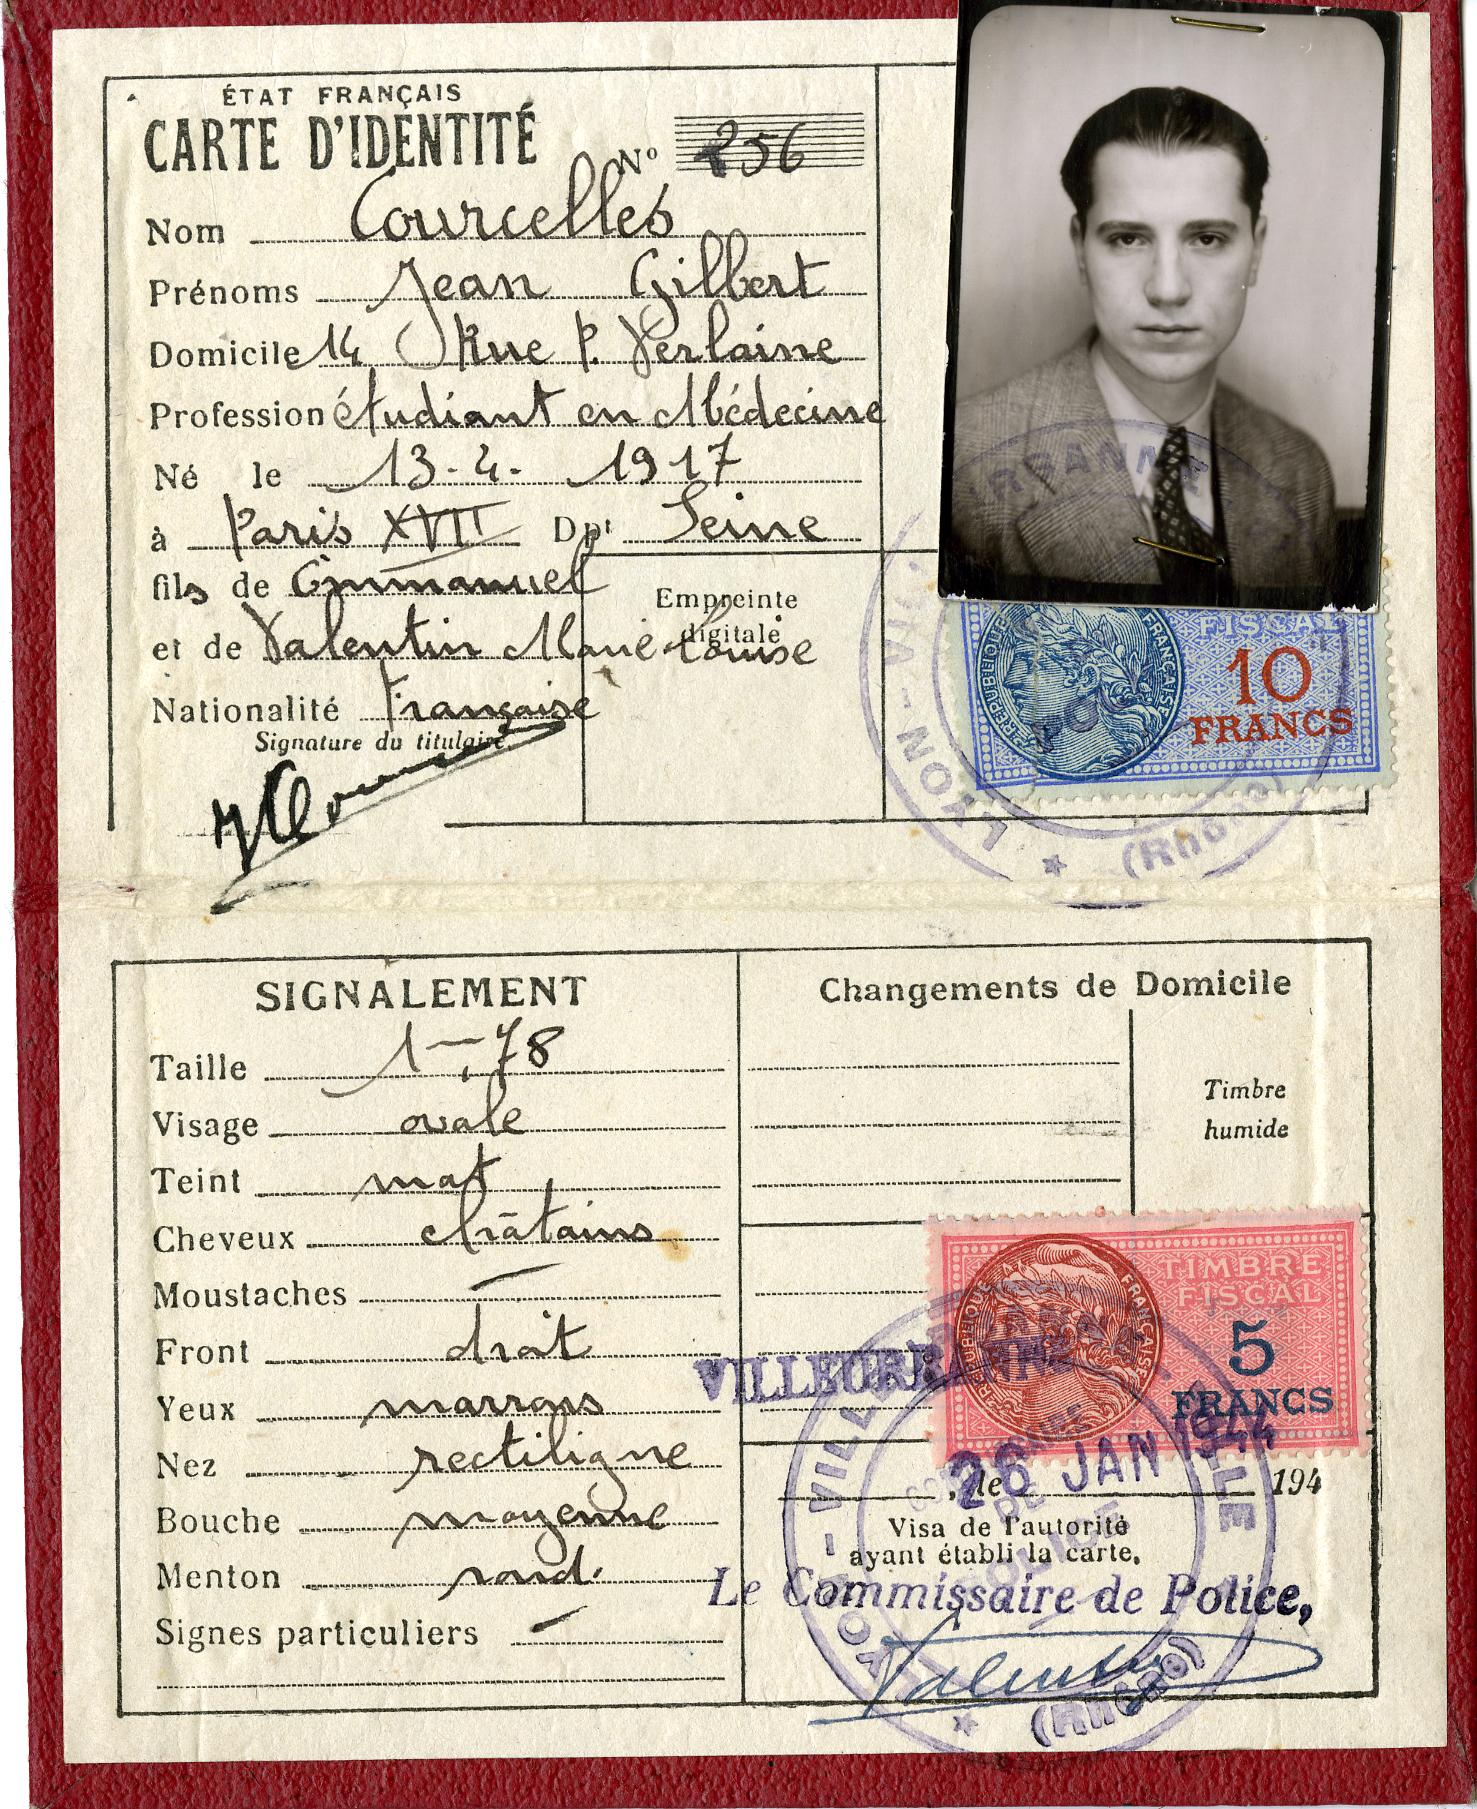 ÉTAT FRANÇAIS
CARTE D'IDENTITÉ
Nº 256
Nom Courcelles
Prénoms Jean Gilbert
Domicile 14 Rue P. Verlaine
Profession étudiant en Médecine
Né le 13-4-1917
à Paris XVII Dpt Seine
fils de Emmanuel
et de Valentin Marie-Louise
Nationalité Française
Signature du titulaire
Empreinte
digitale
FISCAL
10
FRANCS
RÉPUBLIQUE FRANÇAISE
LYON-VILLEURBANNE
(Rhône)
SIGNALEMENT
Taille 1m,78
Visage ovale
Teint mat
Cheveux châtains
Moustaches —
Front droit
Yeux marrons
Nez rectiligne
Bouche moyenne
Menton rond.
Signes particuliers —
Changements de Domicile
Timbre
humide
TIMBRE
FISCAL
5
FRANCS
RÉPUBLIQUE FRANÇAISE
VILLEURBANNE
, le 26 JAN 1944 194
Visa de l'autorité
ayant établi la carte,
Le Commissaire de Police,
COMMISSAIRE
DE
POLICE
(Rhône)